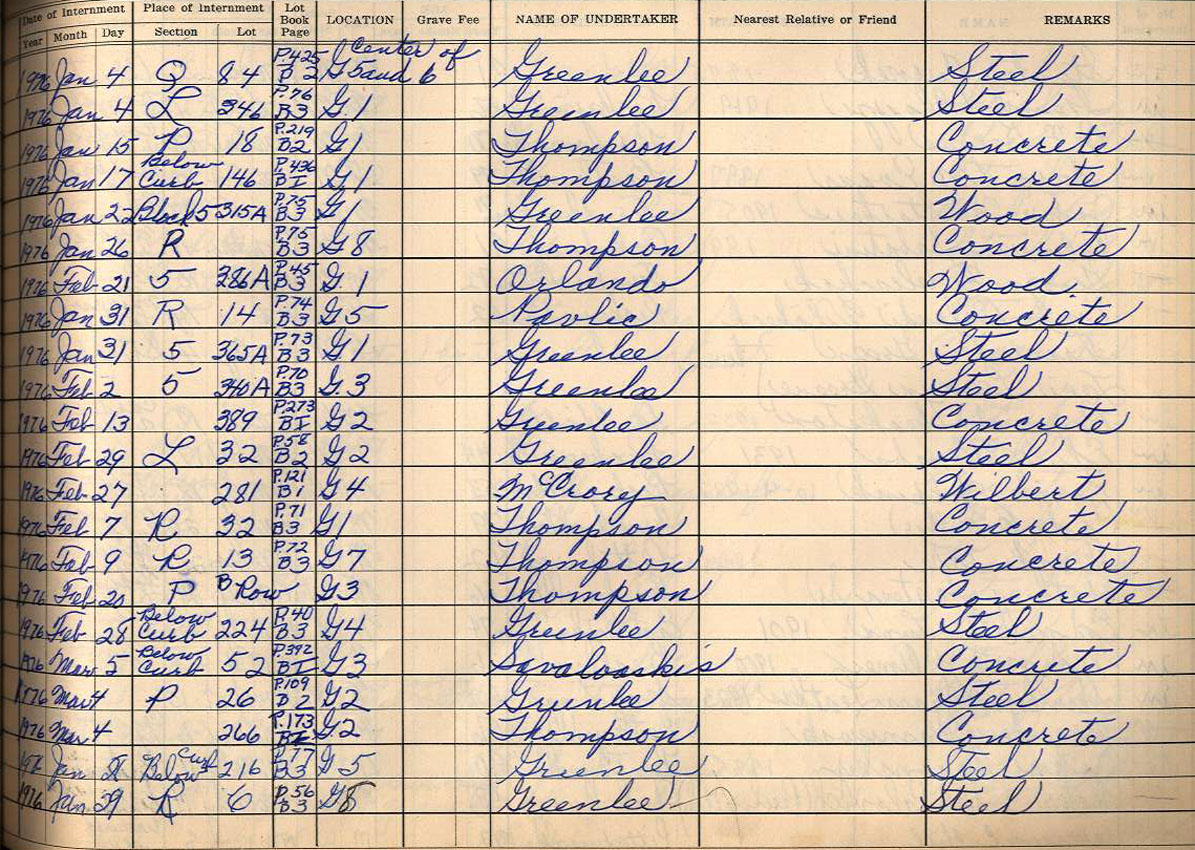 Date of Internment Place of Internment Lot Book Page LOCATION Grave Fee NAME OF UNDERTAKER Nearest Relative or Friend REMARKS
Year Month Day Section Lot
1976 Jan 4 Q 84 P.425 B 2 Center of G 5 and 6 Greenlee Steel
1976 Jan 4 L 346 P.76 B3 G.1 Greenlee Steel
1976 Jan 15 P 18 P.219 B2 G1 Thompson Concrete
1976 Jan 17 Below Curb 146 P.436 BI G1 Thompson Concrete
1976 Jan 22 Block 5 315A P.75 B3 G1 Greenlee Wood
1976 Jan 26 R P.75 B3 G8 Thompson Concrete
1976 Feb 21 5 286A P.45 B3 G.1 Orlando Wood.
1976 Jan 31 R 14 P.74 B3 G5 Pavlic Concrete
1976 Jan 31 5 365A P.73 B3 G.1 Greenlee Steel
1976 Feb. 2 5 340A P.70 B3 G.3 Greenlee Steel
1976 Feb 13 389 P.273 BI G2 Greenlee Concrete
1976 Feb 29 L 32 P.58 B2 G2 Greenlee Steel
1976 Feb 27 281 P.121 B1 G4 McCrory Wilbert
1976 Feb 7 R 32 P.71 B3 G1 Thompson Concrete
1976 Feb 9 R 13 P.72 B3 G7 Thompson Concrete
1976 Feb 20 P B Row G3 Thompson Concrete
1976 Feb 28 Below Curb 224 P.40 B3 G4 Greenlee Steel
1976 Mar 5 Below Curb 52 P.392 BI G3 Savoloskis Concrete
1976 Mar 4 P 26 P.109 B2 G2 Greenlee Steel
1976 Mar 4 266 P.173 BI G.2 Thompson Concrete
Jan Below Curb 216 P.77 B3 G5 Greenlee Steel
1976 Jan 29 R 6 P.56 B3 G8 Greenlee Steel